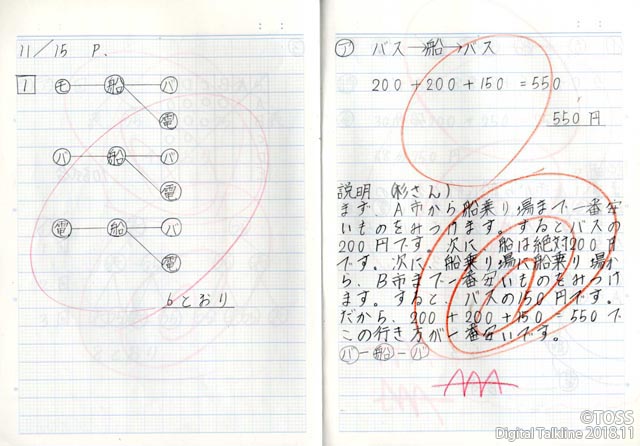 11/15 P.
1
モ 船 バ
電
バ 船 バ
電
電 船 バ
電
6とおり
ア バス→船→バス
200+200+150=550
550円
説明(彩さん)
まず、A市から船乗り場まで一番安
いものをみつけます。するとバスの
200円です。次に、船は絶対200円
です。次に、船乗り場
ら、B市まで一番安いものをみつけ
ます。すると、バスの150円です。
だから、200+200+150=550で
この行き方が一番安いです。
バ-船-バ
AAA
©TOSS
Digital Talkline 2018.11